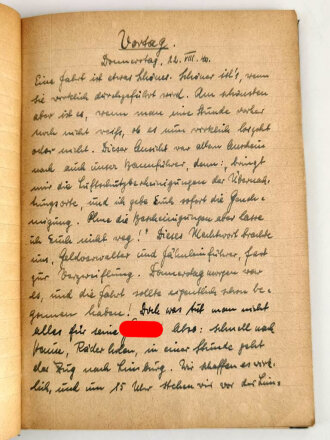 Vortag.
Donnerstag, 22. VIII. 40.
Eine Fahrt ist etwas Schönes. Schöner ist's, wenn
sie wirklich durchgeführt wird. Am schönsten
aber ist es, wenn man eine Stunde vorher
noch nicht weiß, ob es nun wirklich losgeht
oder nicht. Dieser Ansicht war allem Anschein
nach auch unser Bannführer, denn: „bringt
mir die Luftschutzbescheinigungen der Übernach-
tungsorte, und ich gebe Euch sofort die Geneh-
migung. Ohne die Bescheinigungen aber lasse
ich Euch nicht weg!" Dieses Machtwort brachte
uns, Geldverwalter und Fähnleinführer, fast
zur Verzweiflung. Donnerstagmorgen war
es, und die Fahrt sollte eigentlich schon be-
gonnen haben! Doch was tut man nicht
alles für seine Also: schnell nach
Hause, Räder holen, in einer Stunde geht
der Zug nach Limburg. Wir schaffen es wirk-
lich, und um 15 Uhr stehen wir vor der Lim-